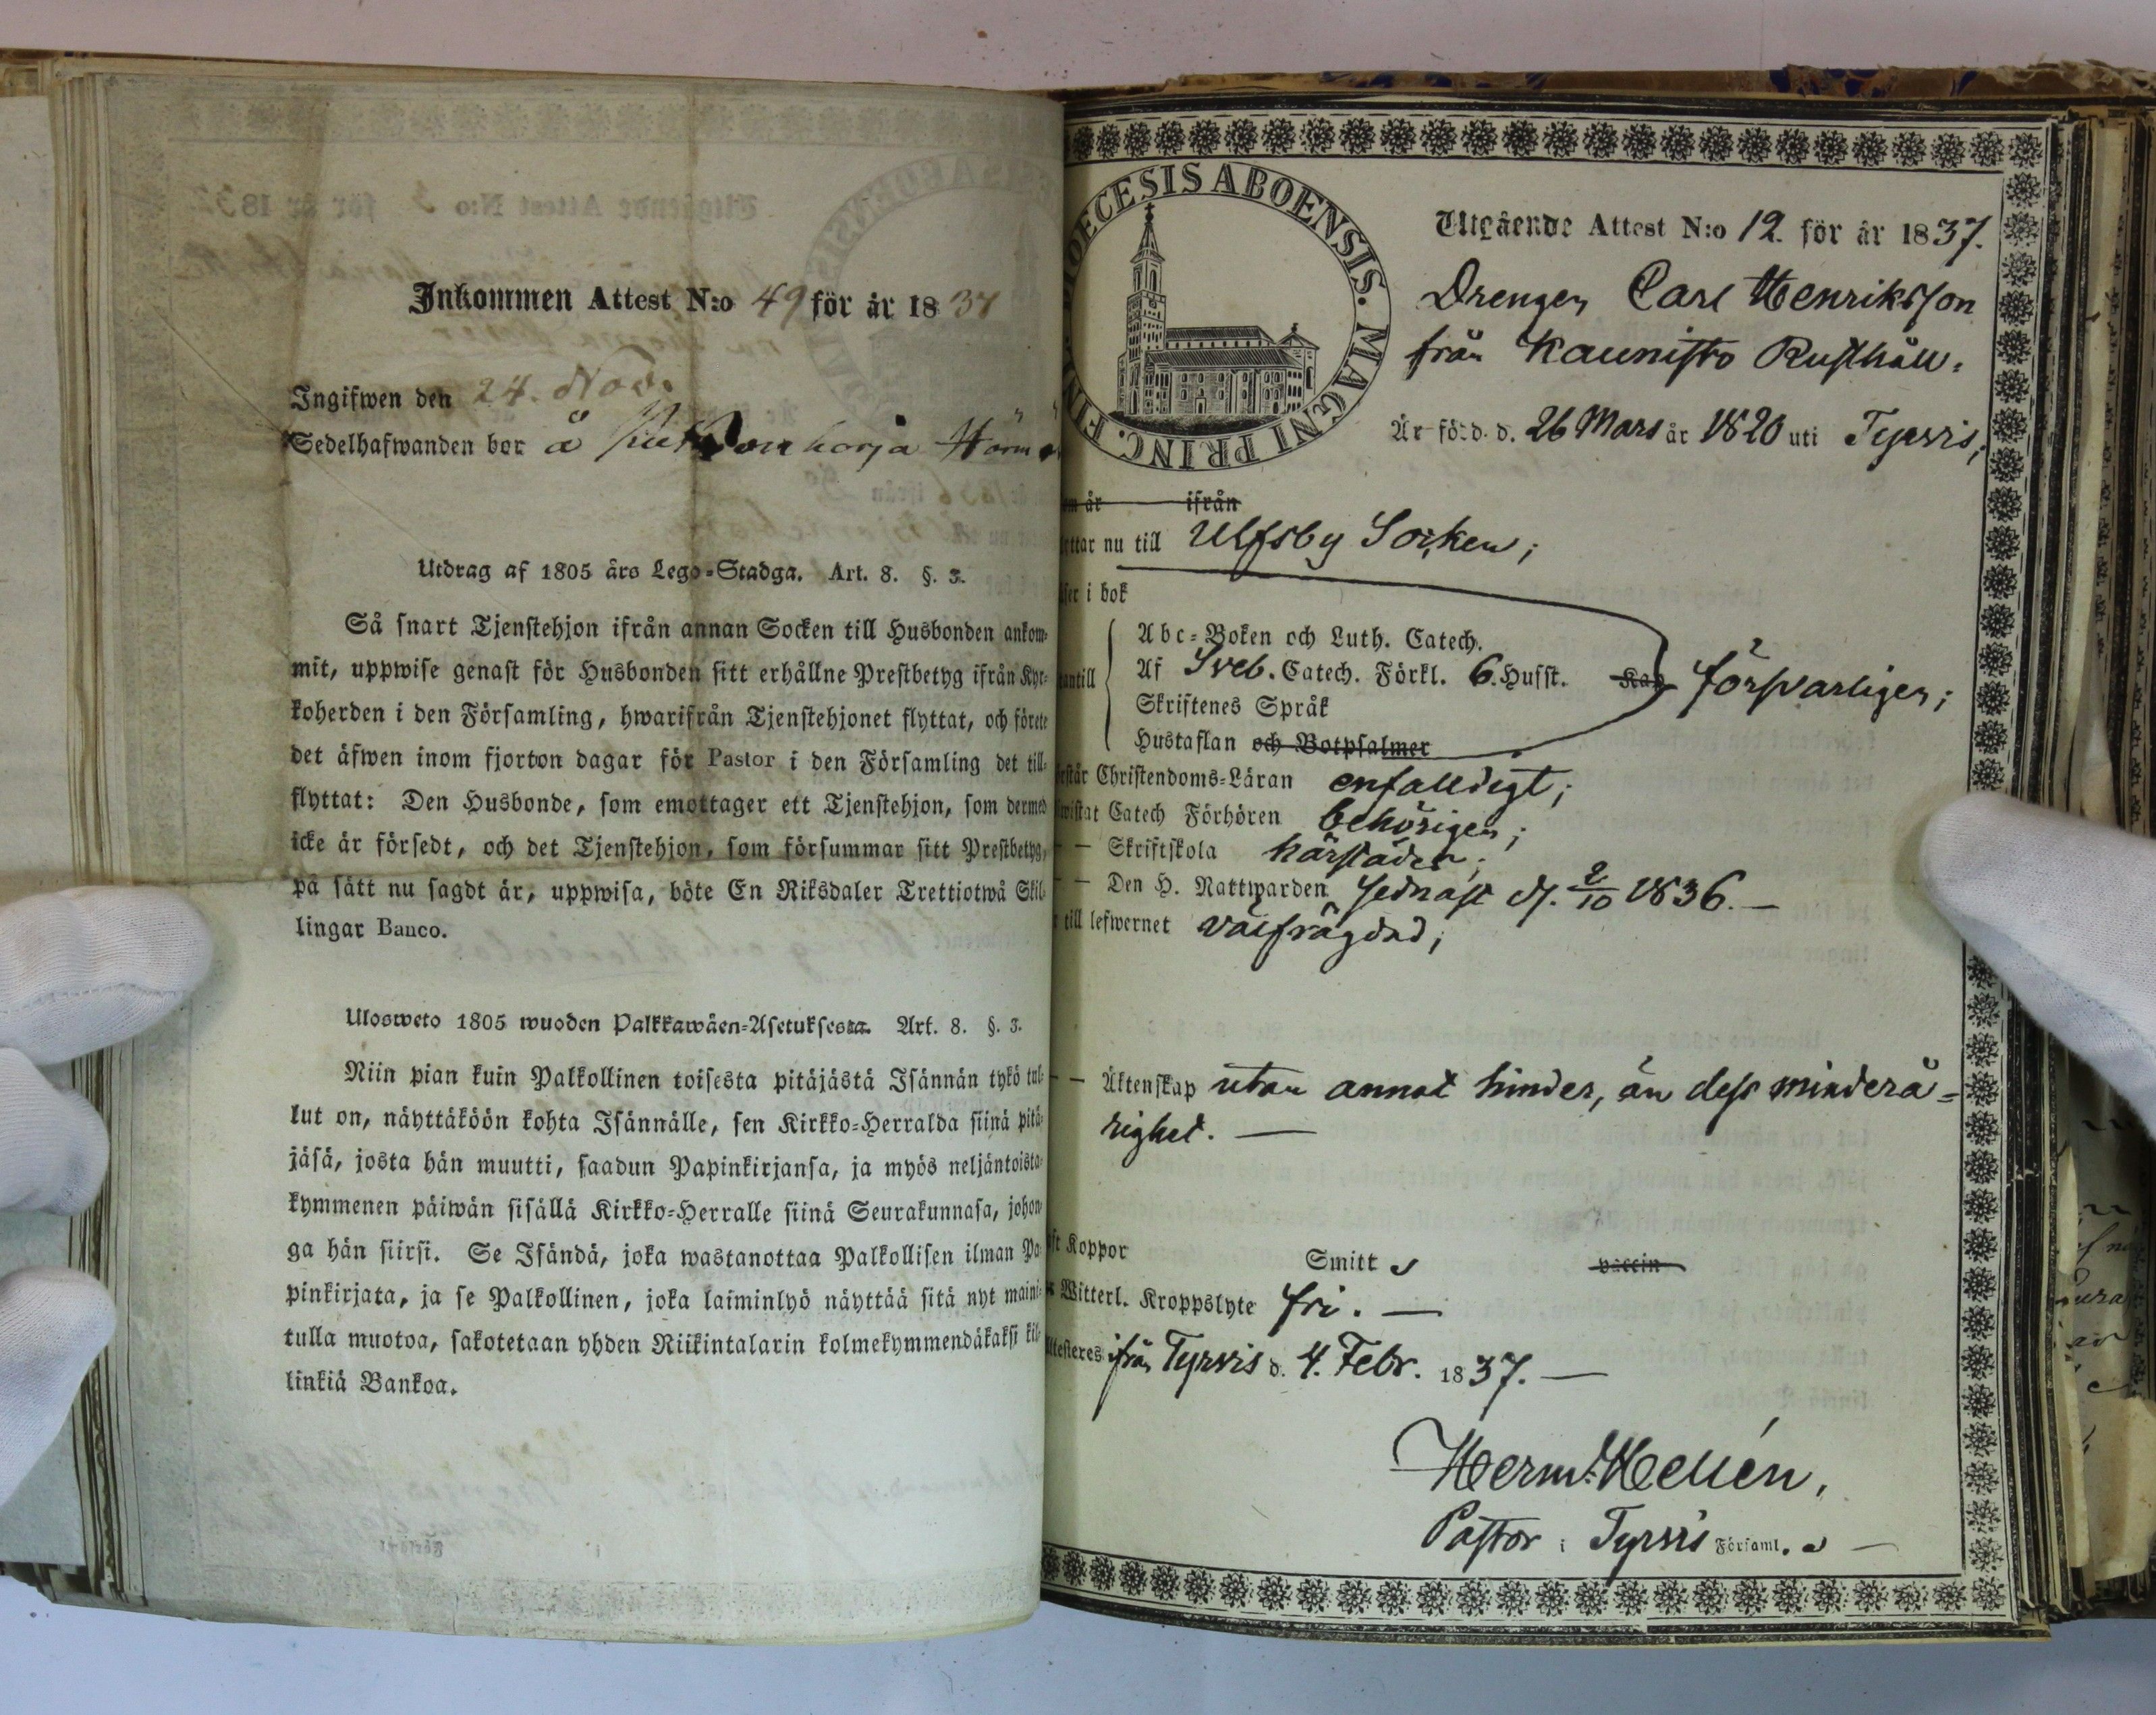 Inkommen Attest N:o 49 för år 1837
Ingifwen den 24. Nov.
Sedelhafwanden bor å
Utdrag af 1805 års Lego-Stadga. Art. 8. §. 3.
Så snart Tjenstehjon ifrån annan Socken till Husbonden ankom-
mit, uppwise genast för Husbonden sitt erhållne Prestbetyg ifrån Kyr-
koherden i den Församling, hwarifrån Tjenstehjonet flyttat, och förete
det äfwen inom fjorton dagar för Pastor i den Församling det till-
flyttat: Den Husbonde, som emottager ett Tjenstehjon, som dermed
icke är försedt, och det Tjenstehjon, som försummar sitt Prestbetyg,
på sätt nu sagdt är, uppwisa, böte En Riksdaler Trettiotwå Skil-
lingar Banco.
Ulosweto 1805 wuoden Palkkawäen-Asetuksesta. Art. 8. §. 3.
Niin pian kuin Palkollinen toisesta pitäjästä Isännän tykö tul-
lut on, näyttäköön kohta Isännälle, sen Kirkko-Herralda siinä pitä-
jäsä, josta hän muutti, saadun Papinkirjansa, ja myös neljäntoista-
kymmenen päiwän sisällä Kirkko-Herralle siinä Seurakunnasa, johon-
ga hän siirsi. Se Isändä, joka wastanottaa Palkollisen ilman Pa-
pinkirjata, ja se Palkollinen, joka laiminlyö näyttää sitä nyt maini-
tulla muotoa, sakotetaan yhden Riikintalarin kolmekymmendäkaksi kil-
linkiä Bankoa.
DIOECESIS ABOENSIS. MAGNI PRINC. FIN
Utgående Attest N:o 12. för år 1837.
Drengen Carl Henriksson
från Kaunisto Rusthåll.
Är född. d. 26 Mars år 1820 uti Tyrvis,
om år ifrån
ttar nu till Ulfsby Socken;
ser i bok
Abc-Boken och Luth. Catech.
antill Af Sveb. Catech. Förkl. 6. Husst. Kap försvarligen;
Skriftenes Språk
Hustaflan och Botpsalmer
står Christendoms-Läran enfaldigt;
wistat Catech Förhören behörigen;
— Skriftskola härstädes;
— Den H. Nattwarden sednast d. 2/10 1836. —
till lefwernet välfrägdad;
— Äktenskap utan annat hinder, än dess minderå-
righet. —
ft Koppor Smitt vaccin
Witterl. Kroppslyte fri. —
ttesteres ifrån Tyrvis d. 4. Febr. 1837. —
Herm. Hellén,
Pastor i Tyrvis Församl.